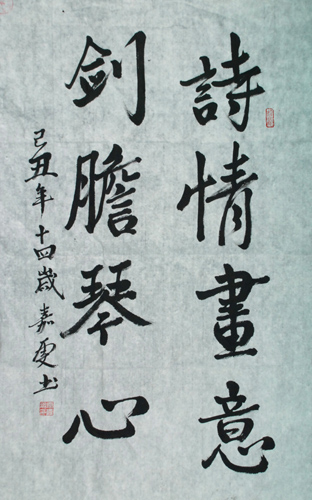 詩情畫意
剑膽琴心
己丑年十四歲嘉雯书